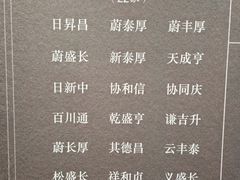 日昇昌 蔚泰厚 蔚丰厚
蔚盛长 新泰厚 天成亨
日新中 协和信 协同庆
百川通 乾盛亨 谦吉升
蔚长厚 其德昌 云丰泰
松盛长 祥和贞 义盛长